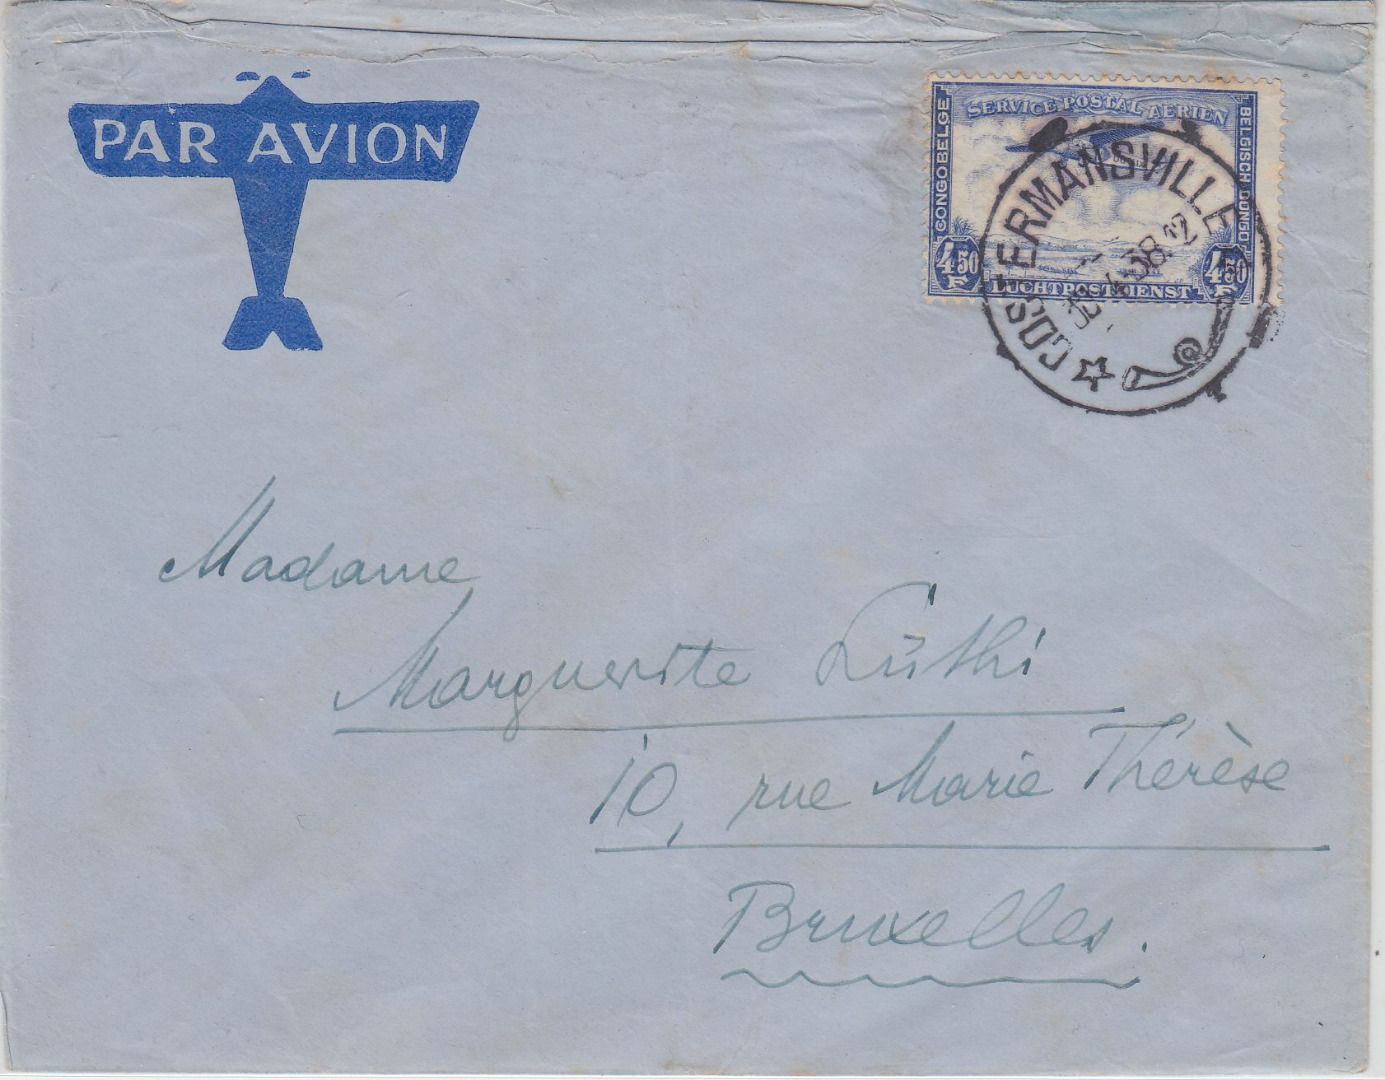 PAR AVION
SERVICE POSTAL AERIEN
CONGO BELGE
BELGISCH CONGO
4.50 F
4.50 F
LUCHTPOSTDIENST
COSTERMANSVILLE
Madame
Marguerite Lüthi
10, rue Marie Thérèse
Bruxelles.